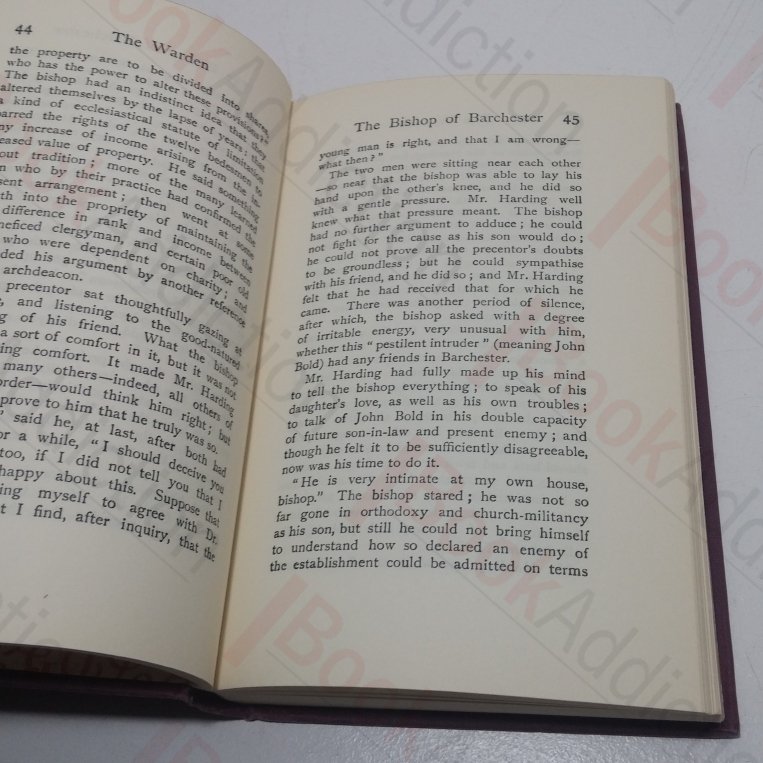 44 The Warden
the property are to be divided into shares,
who has the power to alter these provisions?"
The bishop had an indistinct idea that they
altered themselves by the lapse of years; that
a kind of ecclesiastical statute of limitation
barred the rights of the twelve bedesmen to
any increase of income arising from the in-
creased value of property. He said something
about tradition; more of the many learned
men who by their practice had confirmed the
present arrangement; then went at some
length into the propriety of maintaining the
difference in rank and income between
beneficed clergyman, and certain poor old
who were dependent on charity; and
ded his argument by another reference
archdeacon.
precentor sat thoughtfully gazing at
, and listening to the good-natured
g of his friend. What the bishop
a sort of comfort in it, but it was not
ing comfort. It made Mr. Harding
many others—indeed, all others of
order—would think him right; but
prove to him that he truly was so.
" said he, at last, after both had
or a while, "I should deceive you
too, if I did not tell you that I
happy about this. Suppose that
ing myself to agree with Dr.
t I find, after inquiry, that the
The Bishop of Barchester 45
young man is right, and that I am wrong—
what then?"
The two men were sitting near each other
—so near that the bishop was able to lay his
hand upon the other's knee, and he did so
with a gentle pressure. Mr. Harding well
knew what that pressure meant. The bishop
had no further argument to adduce; he could
not fight for the cause as his son would do;
he could not prove all the precentor's doubts
to be groundless; but he could sympathise
with his friend, and he did so; and Mr. Harding
felt that he had received that for which he
came. There was another period of silence,
after which, the bishop asked with a degree
of irritable energy, very unusual with him,
whether this "pestilent intruder" (meaning John
Bold) had any friends in Barchester.
Mr. Harding had fully made up his mind
to tell the bishop everything; to speak of his
daughter's love, as well as his own troubles;
to talk of John Bold in his double capacity
of future son-in-law and present enemy; and
though he felt it to be sufficiently disagreeable,
now was his time to do it.
"He is very intimate at my own house,
bishop." The bishop stared; he was not so
far gone in orthodoxy and church-militancy
as his son, but still he could not bring himself
to understand how so declared an enemy of
the establishment could be admitted on terms